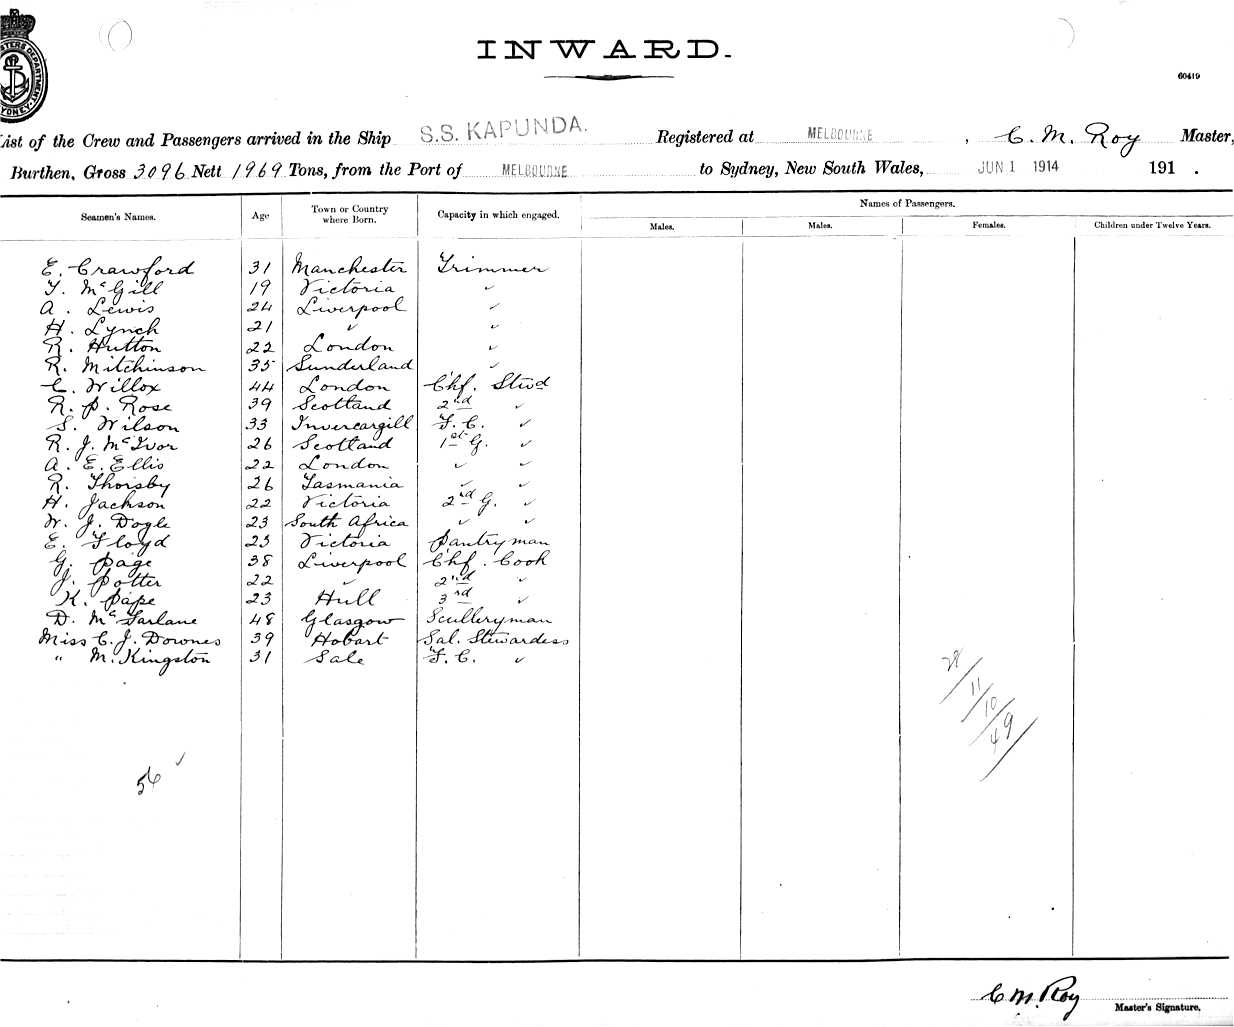 INWARD.
60419
List of the Crew and Passengers arrived in the Ship S.S. KAPUNDA. Registered at MELBOURNE, C. M. Roy Master,
Burthen, Gross 3096 Nett 1969 Tons, from the Port of MELBOURNE to Sydney, New South Wales, JUN 1 1914 191 .
Seamen's Names. Age Town or Country where Born. Capacity in which engaged. Names of Passengers.
Males. Males. Females. Children under Twelve Years.
E. Crawford 31 Manchester Trimmer
T. McGill 19 Victoria ✓
A. Lewis 24 Liverpool ✓
H. Lynch 21 ✓ ✓
R. Hutton 22 London ✓
R. Mitchinson 35 Sunderland ✓
C. Willox 44 London Chf. Stwd
R. P. Rose 39 Scotland 2nd ✓
S. Wilson 33 Invercargill F. C. ✓
R. J. McIvor 26 Scotland 1st G. ✓
A. E. Ellis 22 London ✓ ✓
R. Thorsby 26 Tasmania ✓ ✓
H. Jackson 22 Victoria 2nd G. ✓
W. J. Dogle 23 South Africa ✓ ✓
E. Floyd 23 Victoria Pantryman
G. Page 38 Liverpool Chf. Cook
J. Potter 22 ✓ 2nd ✓
K. Pape 23 Hull 3rd ✓
D. McFarlane 48 Glasgow Sculleryman
Miss C. J. Downes 39 Hobart Sal. Stewardess
" M. Kingston 31 Sale F. C. ✓
28/11/10/49
56 ✓
C M. Roy
Master's Signature.